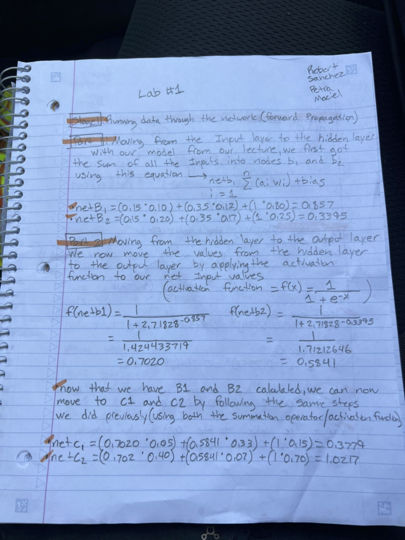 Robert
Sanchez
Petra
Maciel
Lab #1
Running data through the network (Forward Propagation)
Moving from the Input layer to the hidden layer
with our model from our lecture, we first got
the sum of all the Inputs into nodes b1 and b2
using this equation → netb1 n Σ i = 1 (ai wi) + bias
• netB1 = (0.15 * 0.10) + (0.35 * 0.12) + (1 * 0.80) = 0.857
• netB2 = (0.15 * 0.20) + (0.35 * 0.17) + (1 * 0.25) = 0.3395
Moving from the hidden layer to the output layer
We now move the values from the hidden layer
to the output layer by applying the activation
function to our net Input values
(activation function = f(x) = 1 / 1 + e^-x)
f(netb1) = 1 / 1 + 2.71828^-0.857 f(netb2) = 1 / 1 + 2.71828^-0.3395
= 1 / 1.424433719 = 1 / 1.71212646
= 0.7020 = 0.5841
now that we have B1 and B2 calculated, we can now
move to C1 and C2 by following the same steps
we did previously (using both the summation operator/activation function)
• net C1 = (0.7020 * 0.05) + (0.5841 * 0.33) + (1 * 0.15) = 0.3779
• net C2 = (0.702 * 0.40) + (0.5841 * 0.07) + (1 * 0.70) = 1.0217